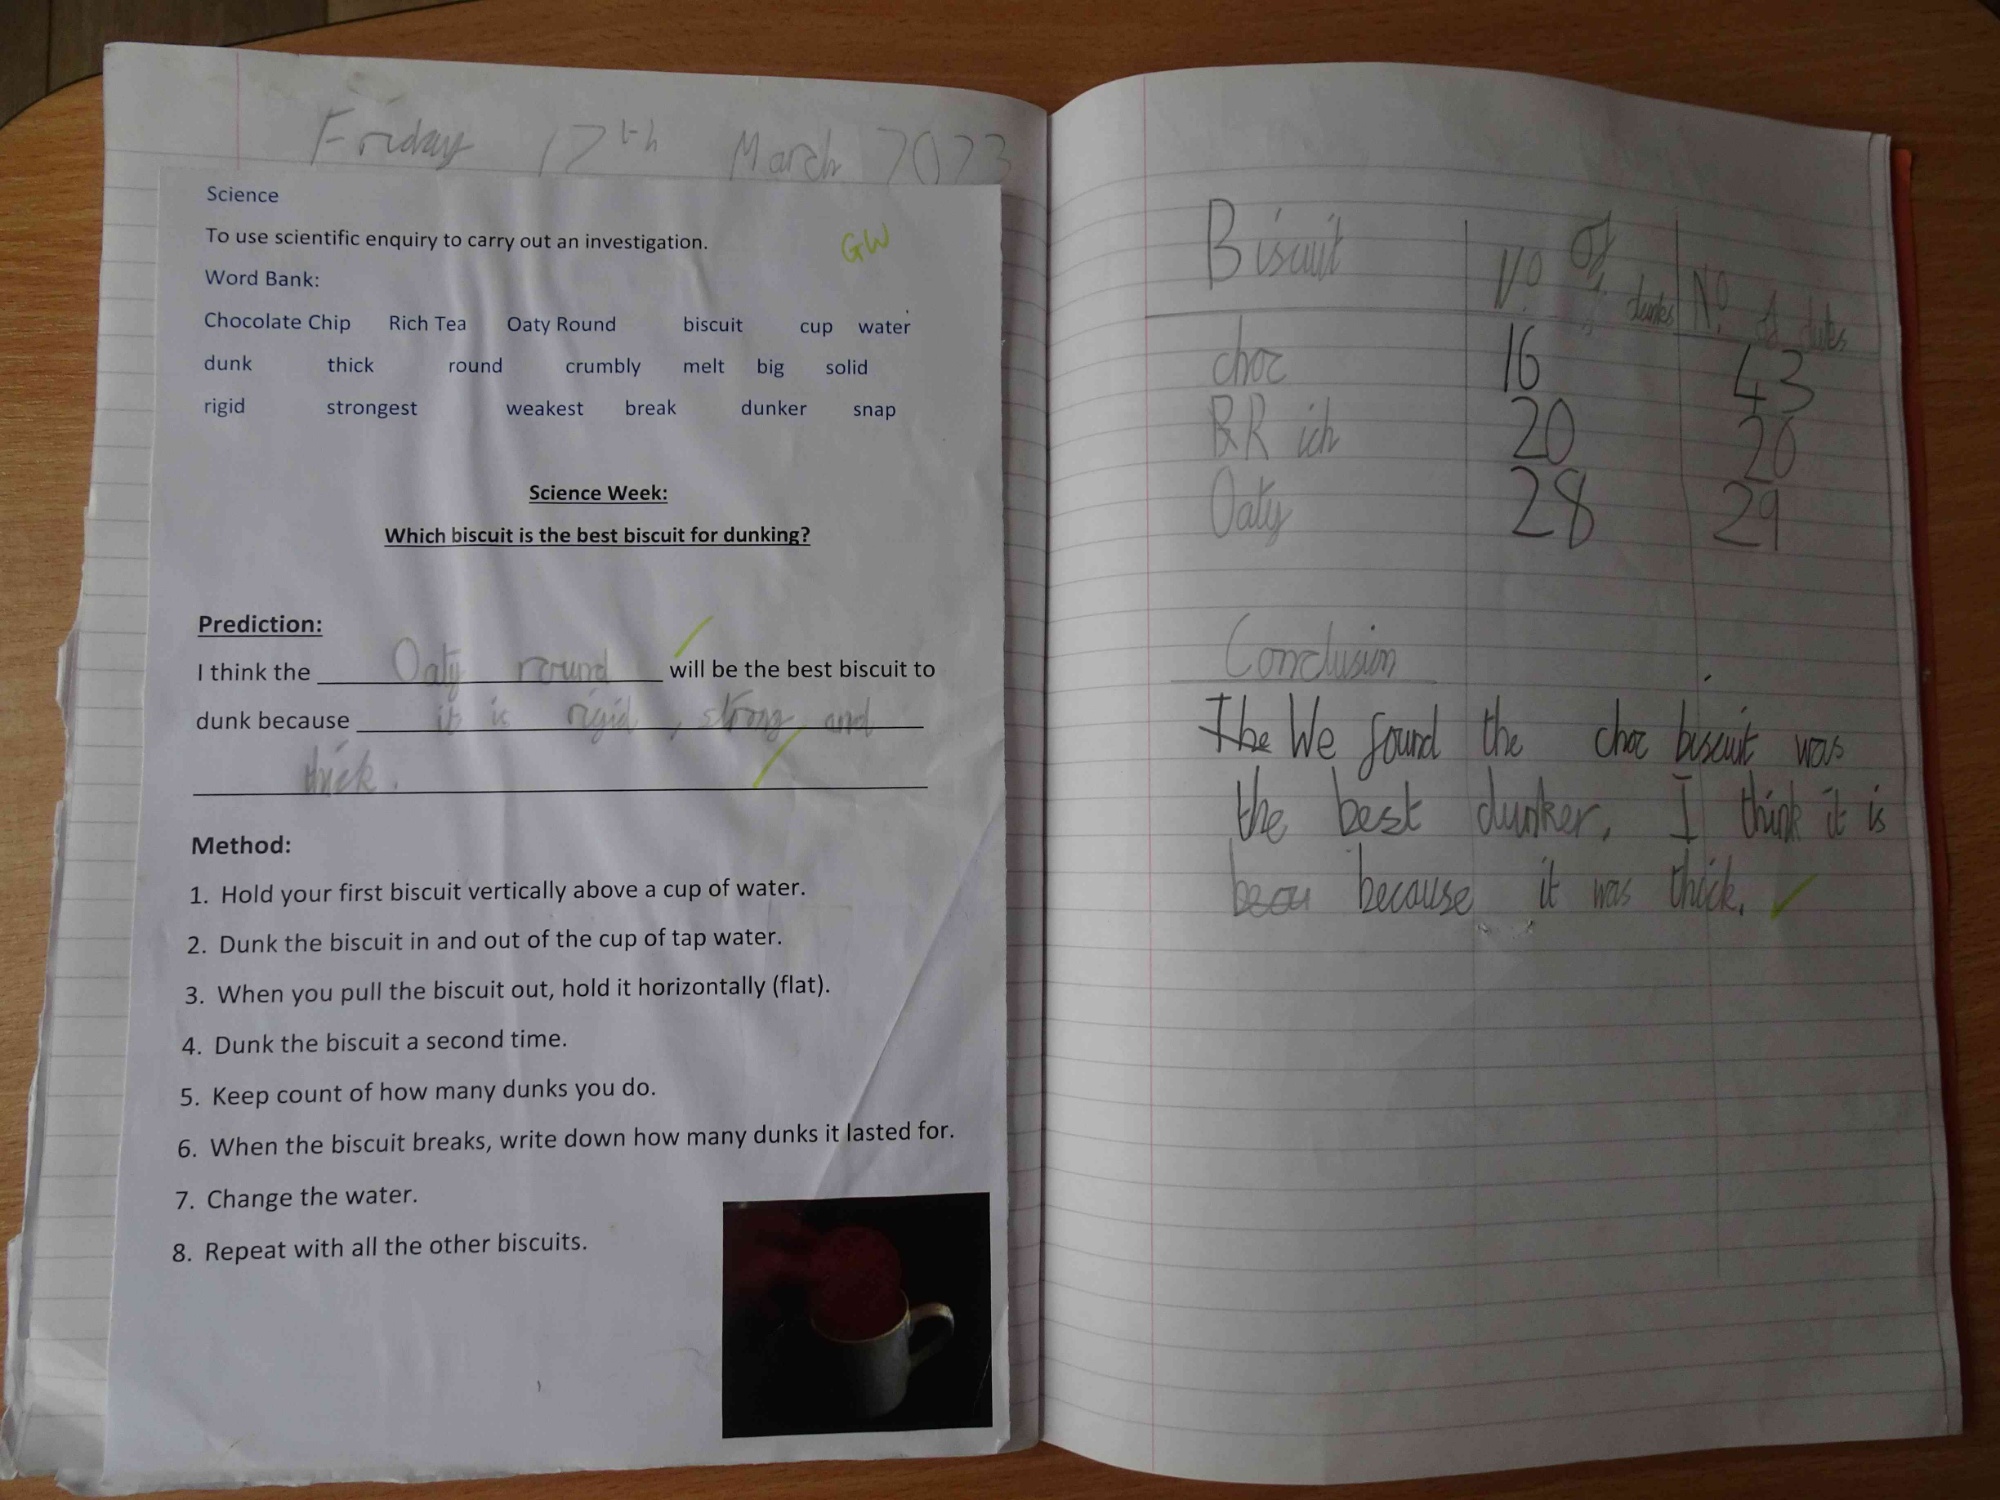 Friday 17th March 2023
Science
To use scientific enquiry to carry out an investigation.
GW
Word Bank:
Chocolate Chip Rich Tea Oaty Round biscuit cup water
dunk thick round crumbly melt big solid
rigid strongest weakest break dunker snap
Science Week:
Which biscuit is the best biscuit for dunking?
Prediction:
I think the Oaty round will be the best biscuit to
dunk because it is rigid, strong and
thick.
Method:
1. Hold your first biscuit vertically above a cup of water.
2. Dunk the biscuit in and out of the cup of tap water.
3. When you pull the biscuit out, hold it horizontally (flat).
4. Dunk the biscuit a second time.
5. Keep count of how many dunks you do.
6. When the biscuit breaks, write down how many dunks it lasted for.
7. Change the water.
8. Repeat with all the other biscuits.
Biscuit No. of dunks No. of
choc 16 43
Rich 20 20
Oaty 28 29
Conclusion
The We found the choc biscuit was
the best dunker. I think it is
becau because it was thick.